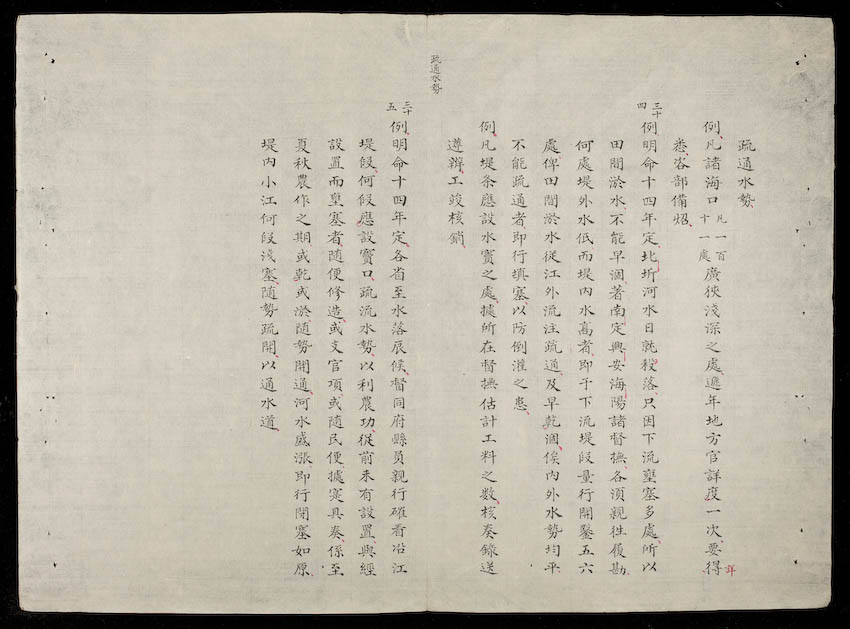 疏通水勢
疏通水勢
例凡諸海口凡一百十一處廣狹淺深之處遞年地方官詳度一次要得
詳
悉咨部備炤
三十四
例明命十四年定北圻河水日就殺落只因下流壅塞多處所以
田間淤水不能早涸著南定興安海陽諸督撫各須親徃履勘
何處堤外水低而堤内水高者即于下流堤段量行開鑿五六
處俾田間淤水從江外流注疏通及早乾涸俟内外水勢均平
不能疏通者即行填塞以防倒灌之患
例凡堤条應設水竇之處據所在督撫估計工料之數核奏錄送
遵辦工竣核銷
三十五
例明命十四年定各省至水落辰候督同府縣員親行確看沿江
堤段何段應設竇口疏流水勢以利農功從前未有設置與經
設置而壅塞者隨便修造或支官項或隨民便據寔具奏係至
夏秋農作之期或乾或淤隨勢開通河水盛漲即行閉塞如原
堤内小江何段淺塞隨勢疏開以通水道